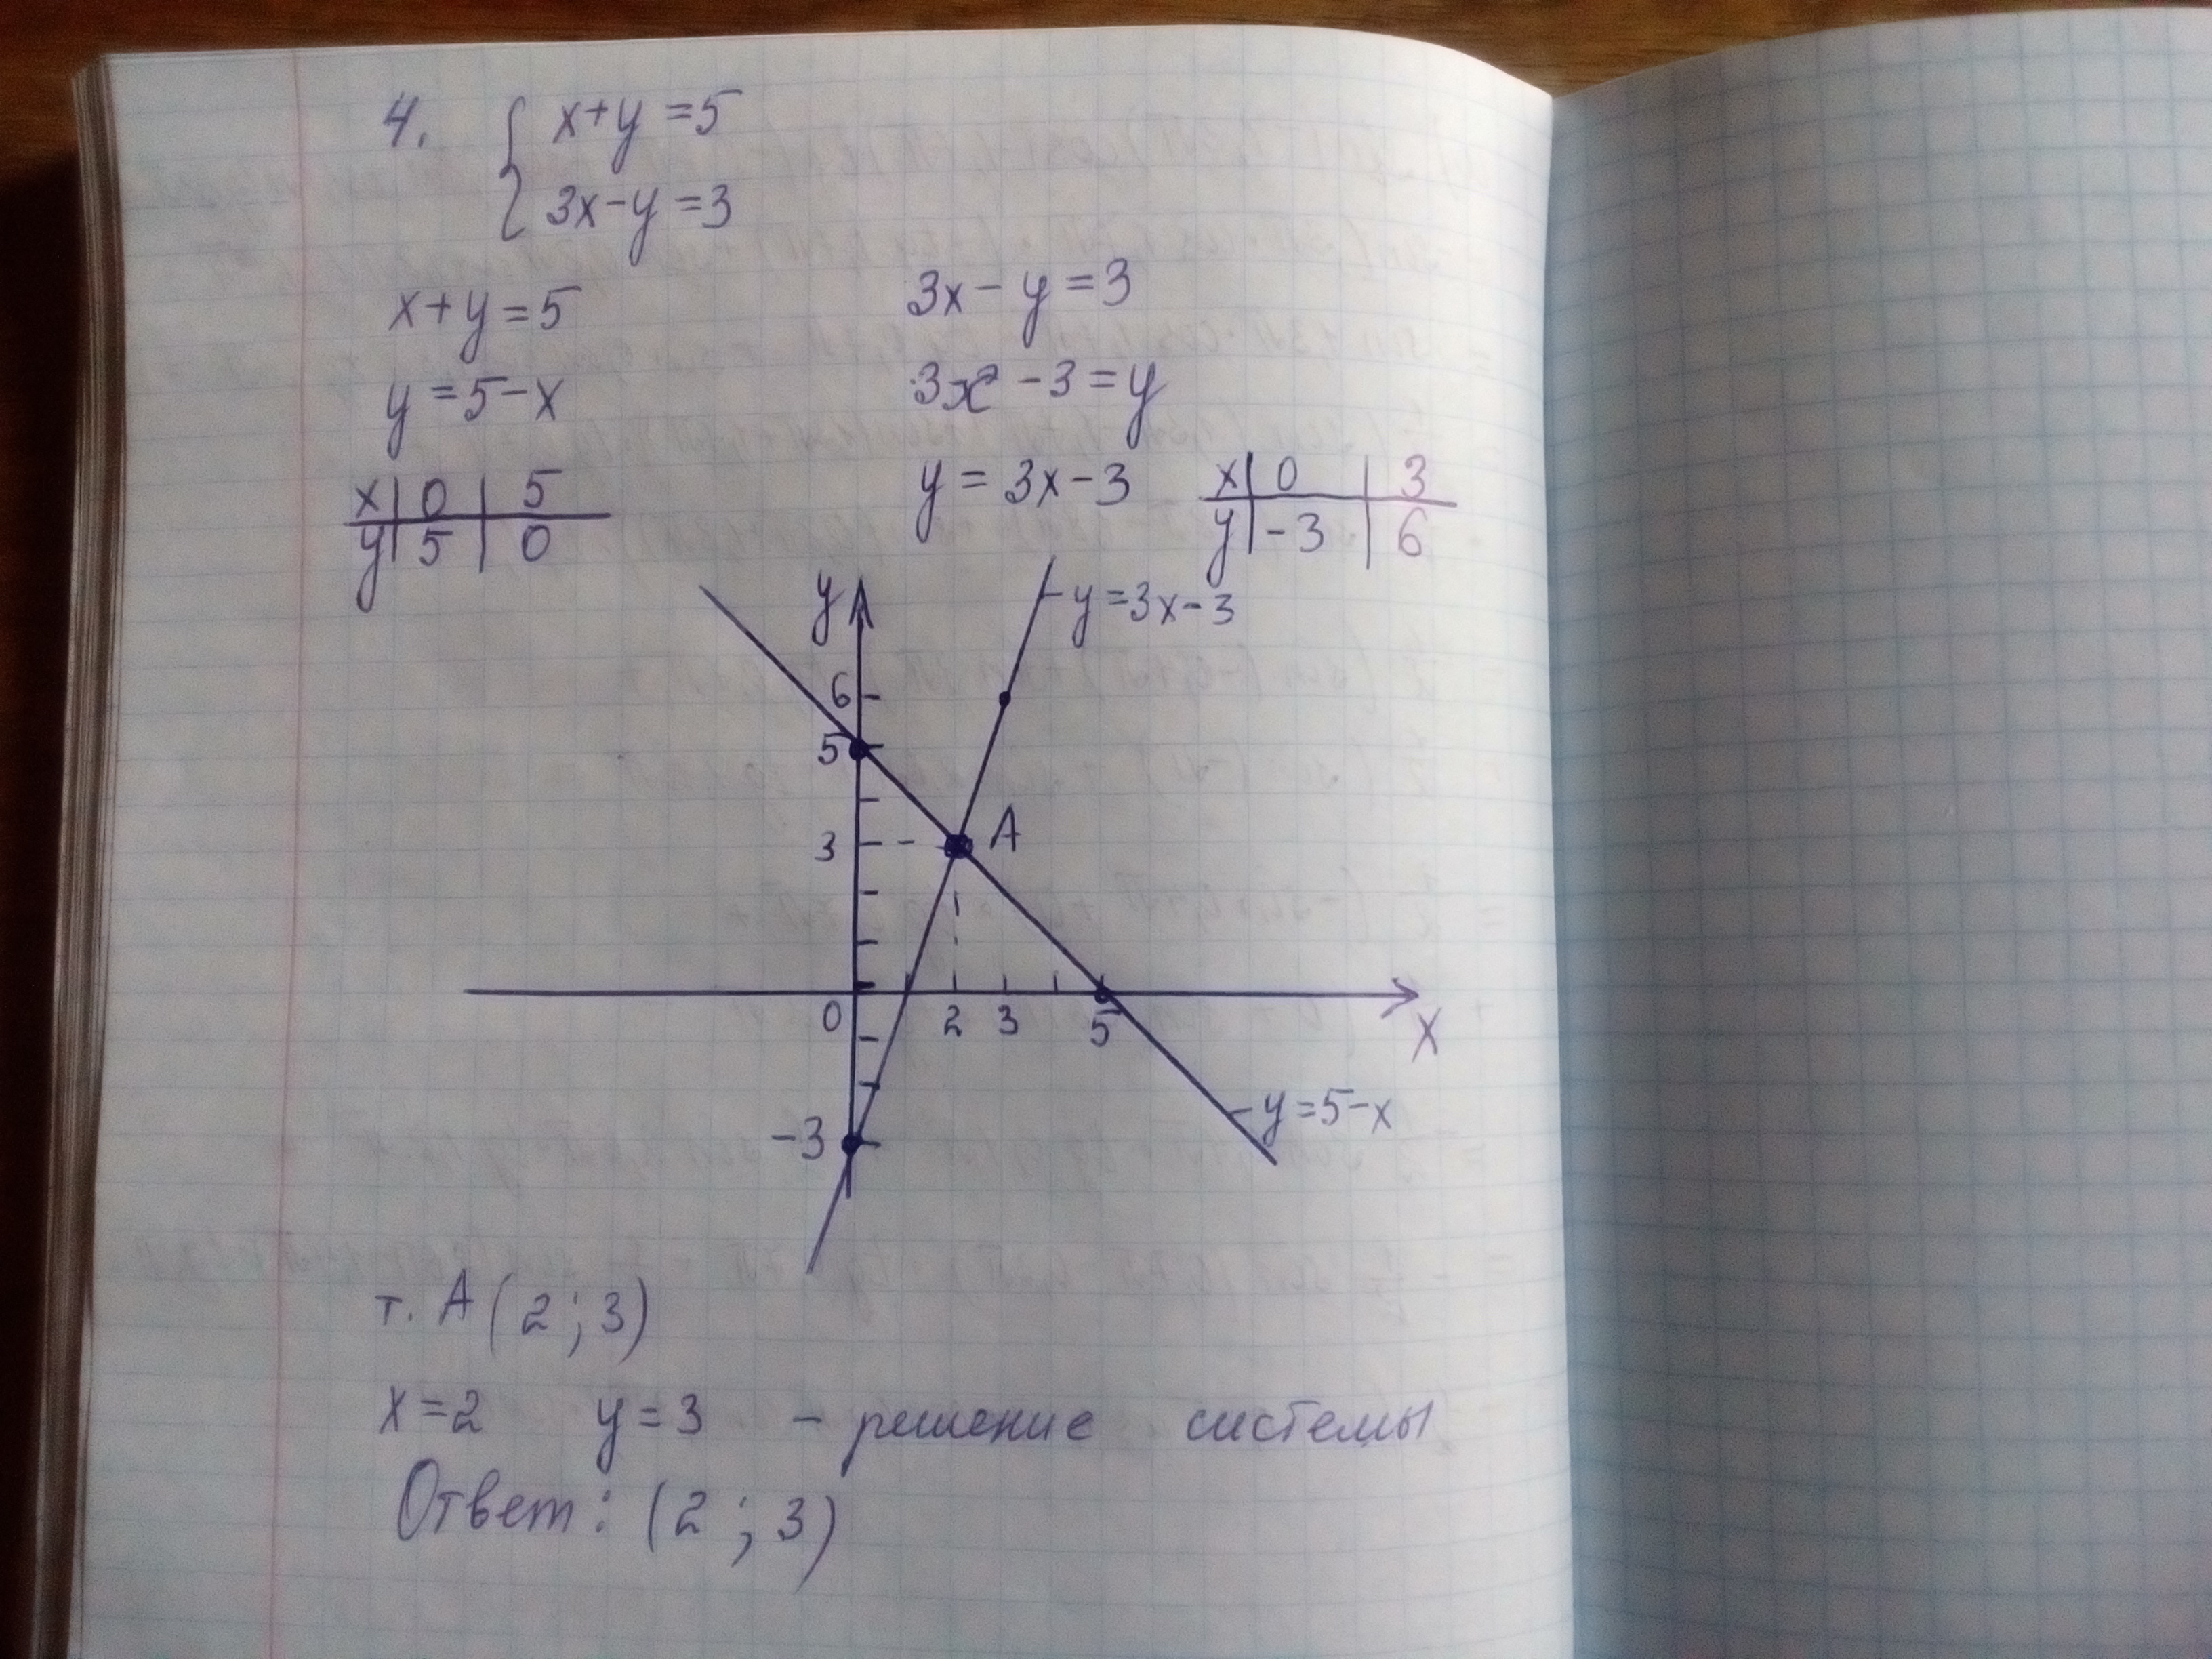 4. { x+y=5
3x-y=3
x+y=5
y=5-x
x | 0 | 5
y | 5 | 0
3x-y=3
3x-3=y
y=3x-3
x | 0 | 3
y | -3 | 6
y
y=3x-3
6
5
3
A
0 2 3 5
x
-3
y=5-x
т. A (2; 3)
x=2 y=3 - решение системы
Ответ: (2; 3)